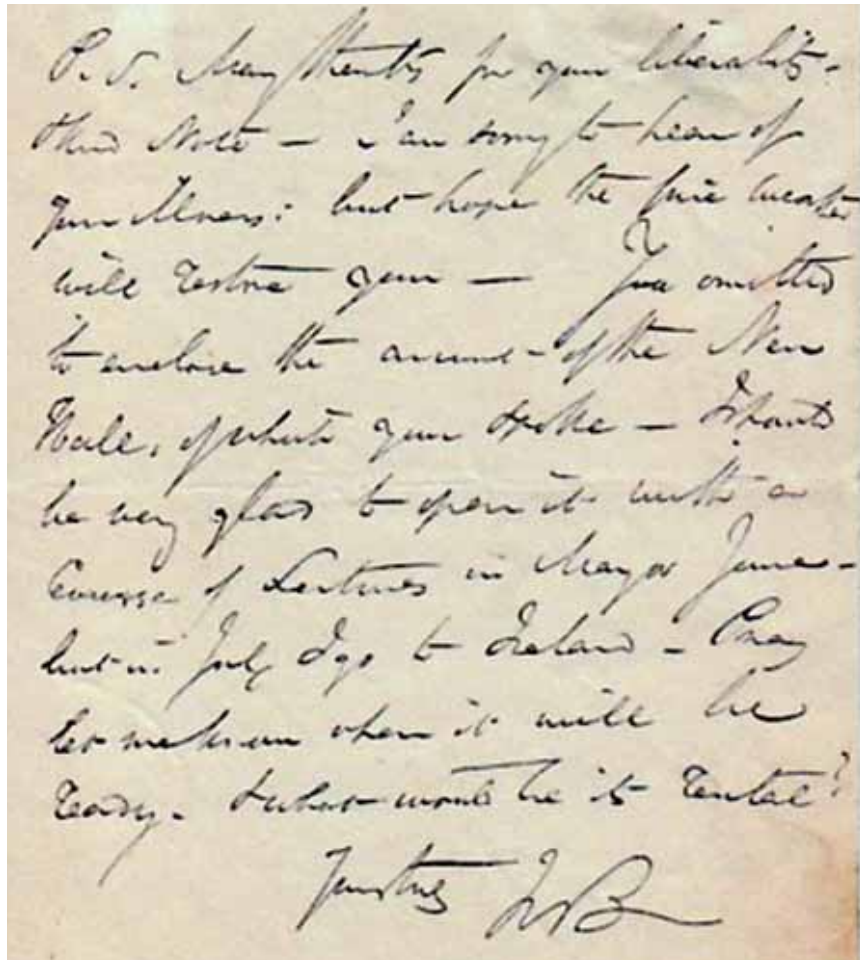 P.S. Many thanks for your liberality -
this Note — I am sorry to hear of
your Illness: but hope the fine weather
will restore you — You omitted
to enclose the amount of the New
Hall, of which you spoke — I should
be very glad to open it with a
Course of Lectures in May or June -
but in July I go to Ireland - Pray
let me know when it will be
ready - & what would be its rental?
Yours truly